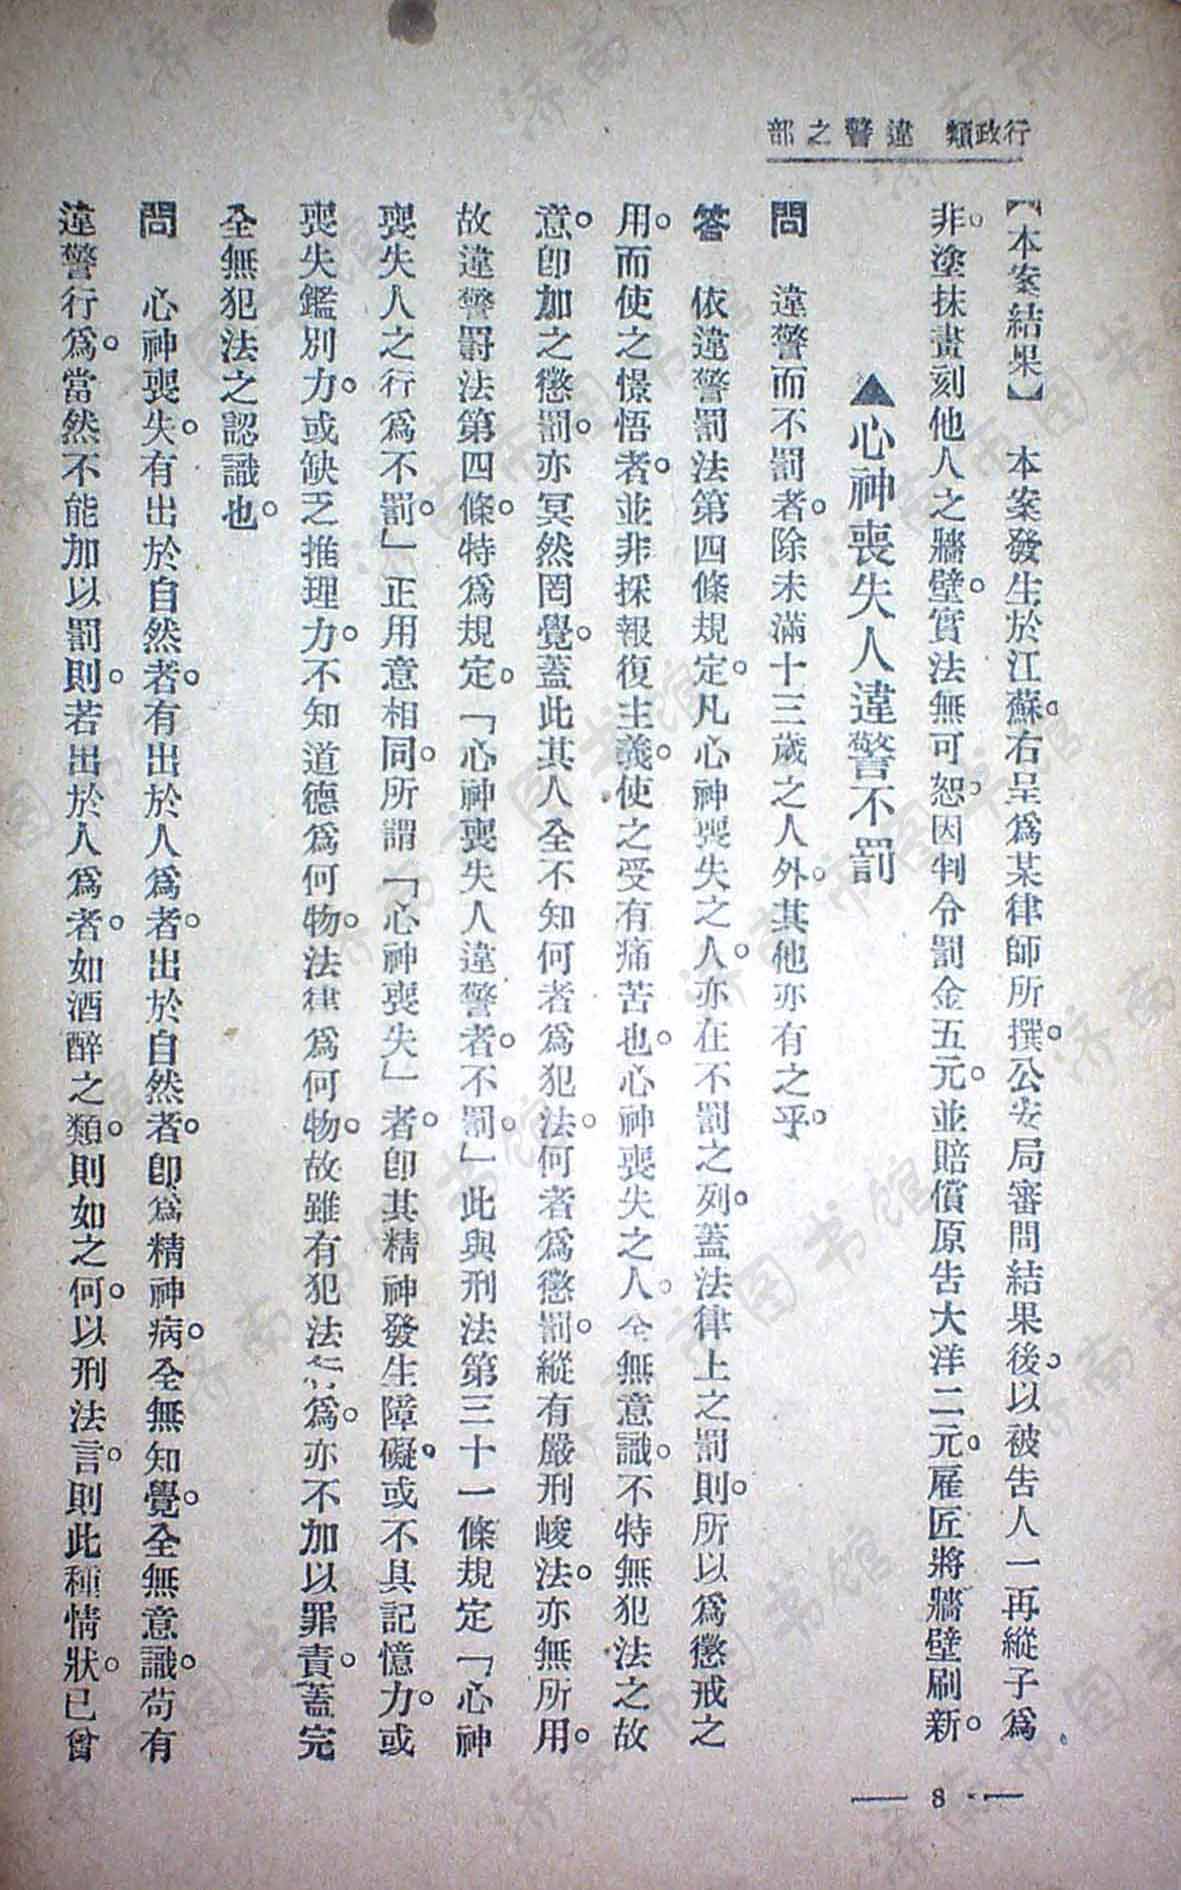 行政類　違警之部
【本案結果】　本案發生於江蘇。右呈爲某律師所撰。公安局審問結果後。以被告人一再縱子爲
非。塗抹畫刻他人之牆壁。實法無可恕。因判令罰金五元。並賠償原告大洋二元。雇匠將牆壁刷新。
▲心神喪失人違警不罰
問　違警而不罰者。除未滿十三歲之人外。其他亦有之乎。
答　依違警罰法第四條規定。凡心神喪失之人。亦在不罰之列。蓋法律上之罰則。所以爲懲戒之
用。而使之憬悟者。並非採報復主義。使之受有痛苦也。心神喪失之人。全無意識。不特無犯法之故
意。卽加之懲罰。亦冥然罔覺。蓋此其人全不知何者爲犯法。何者爲懲罰。縱有嚴刑峻法。亦無所用。
故違警罰法第四條。特爲規定。「心神喪失人違警者。不罰。」此與刑法第三十一條規定「心神
喪失人之行爲不罰。」正用意相同。所謂「心神喪失」者。卽其精神發生障礙。或不具記憶力。或
喪失鑑別力。或缺乏推理力。不知道德爲何物。法律爲何物。故雖有犯法行爲。亦不加以罪責。蓋完
全無犯法之認識也。
問　心神喪失。有出於自然者。有出於人爲者。出於自然者。卽爲精神病。全無知覺。全無意識。苟有
違警行爲。當然不能加以罰則。若出於人爲者。如酒醉之類。則如之何。以刑法言。則此種情狀。已曾
— 8 —
济南市图书馆